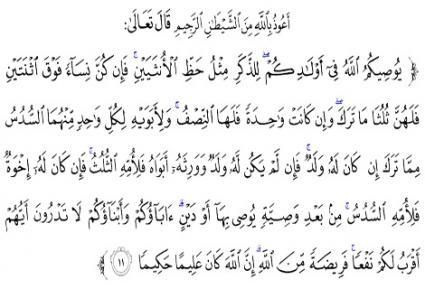 أَعُوذُ بِاللَّهِ مِنَ الشَّيْطَانِ الرَّجِيمِ قَالَ تَعَالَى:
﴿ يُوصِيكُمُ اللَّهُ فِي أَوْلَادِكُمْ ۖ لِلذَّكَرِ مِثْلُ حَظِّ الْأُنثَيَيْنِ ۚ فَإِن كُنَّ نِسَاءً فَوْقَ اثْنَتَيْنِ
فَلَهُنَّ ثُلُثَا مَا تَرَكَ ۖ وَإِن كَانَتْ وَاحِدَةً فَلَهَا النِّصْفُ ۚ وَلِأَبَوَيْهِ لِكُلِّ وَاحِدٍ مِّنْهُمَا السُّدُسُ
مِمَّا تَرَكَ إِن كَانَ لَهُ وَلَدٌ ۚ فَإِن لَّمْ يَكُن لَّهُ وَلَدٌ وَوَرِثَهُ أَبَوَاهُ فَلِأُمِّهِ الثُّلُثُ ۚ فَإِن كَانَ لَهُ إِخْوَةٌ
فَلِأُمِّهِ السُّدُسُ ۚ مِنْ بَعْدِ وَصِيَّةٍ يُوصِي بِهَا أَوْ دَيْنٍ ۗ ءَابَاؤُكُمْ وَأَبْنَاؤُكُمْ لَا تَدْرُونَ أَيُّهُمْ
أَقْرَبُ لَكُمْ نَفْعًا ۚ فَرِيضَةً مِّنَ اللَّهِ ۗ إِنَّ اللَّهَ كَانَ عَلِيمًا حَكِيمًا ١١ ﴾